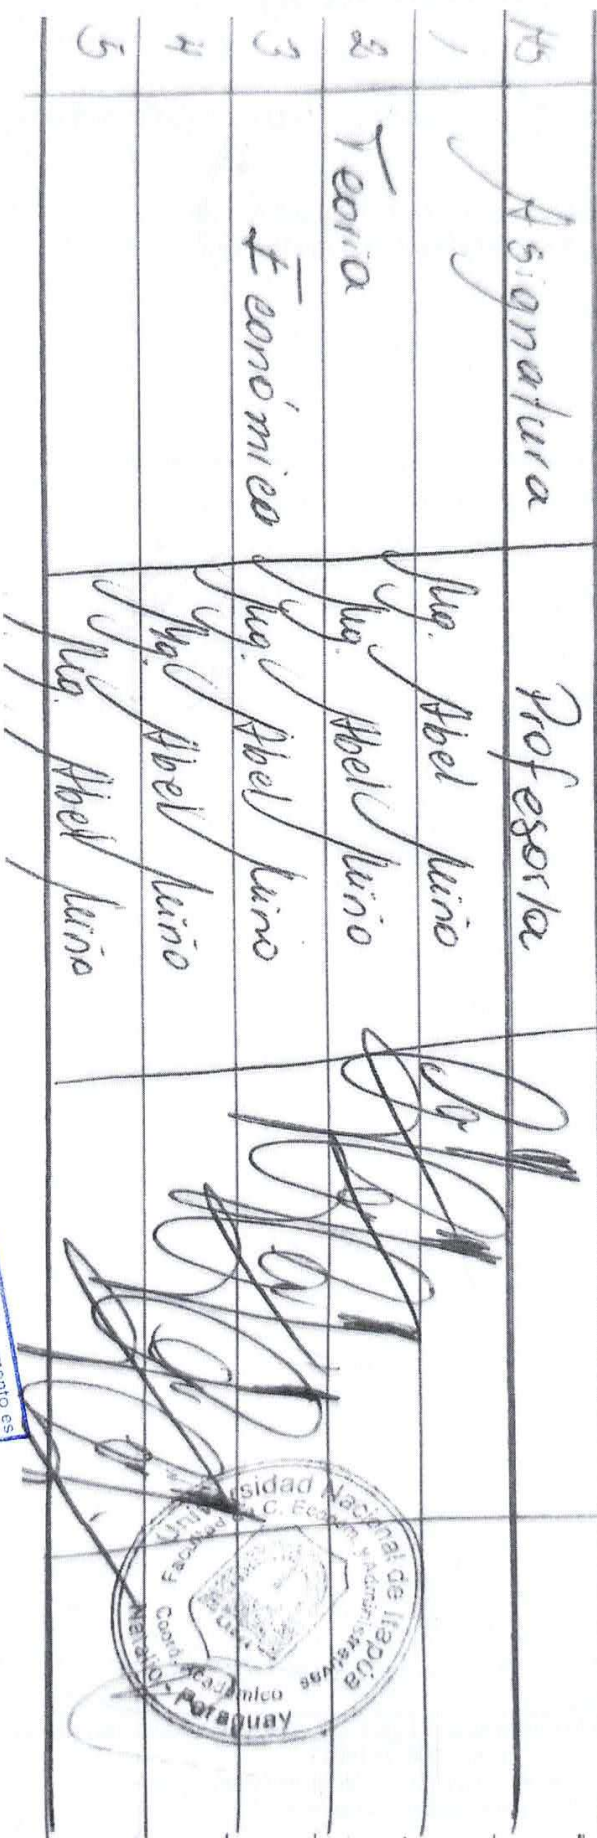 Nº Asignatura Profesor/a
1 Mg. Abel Miño
2 Teoría Mg. Abel Miño
3 Económica Mg. Abel Miño
4 Mg. Abel Miño
5 Mg. Abel Miño
Universidad Nacional de Itapúa
Facultad de C. Econom. y Administrativas
Coord. Académico
Natalio - Paraguay